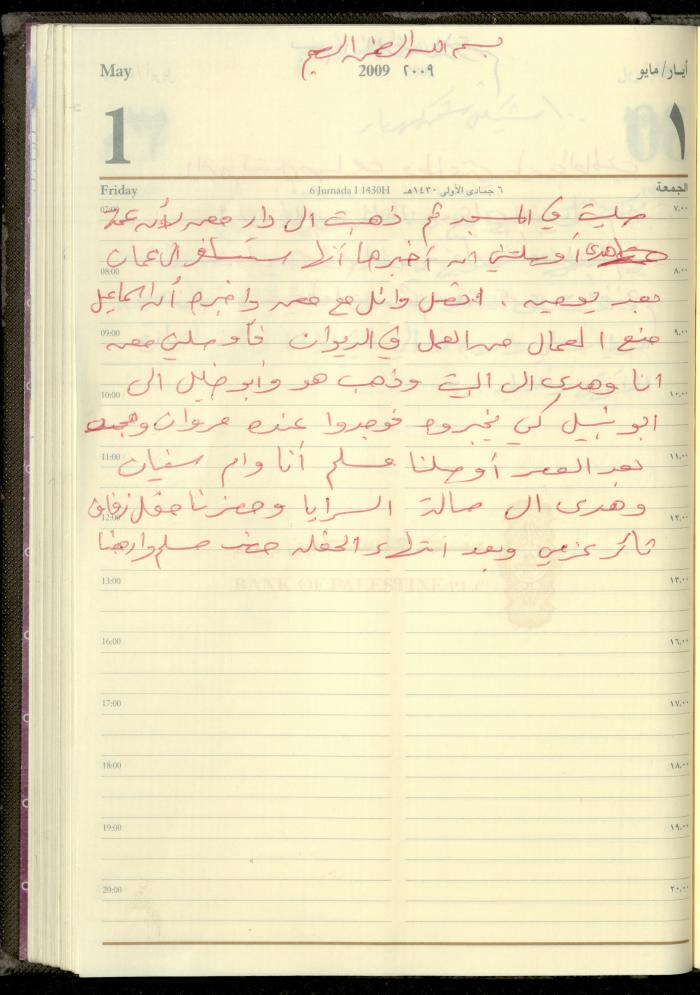 بسم الله الرحمن الرحيم
May 2009 ٢٠٠٩ أيار/ مايو
1 ١
Friday 6 Jumada I 1430H ٦ جمادى الأولى ١٤٣٠هـ الجمعة
07:00 ٧,٠٠
صليت في المسجد ثم ذهبت الى دار لأنه
هدى أوصلتني أخبرها أنها ستسافر الى عمان
08:00 ٨,٠٠
بعد يومين . اتصل وائل مع واخبره أن اسماعيل
09:00 ٩,٠٠
منع العمال من العمل في الديوان فأوصلني
انا وهدى الى البيت وذهب هو وأبو خليل الى
10:00 ١٠,٠٠
ابو نبيل كي يخبروه فوجدوا عنده مروان
11:00 ١١,٠٠
بعد العصر أوصلنا مسلم أنا وام سفيان
وهدى الى صالة السرايا وحضرنا حفل زفاف
12:00 ١٢,٠٠
ثائر عزمي وبعد انتهاء الحفلة
13:00 ١٣,٠٠
BANK OF PALESTINE PLC
16:00 ١٦,٠٠
17:00 ١٧,٠٠
18:00 ١٨,٠٠
19:00 ١٩,٠٠
20:00 ٢٠,٠٠